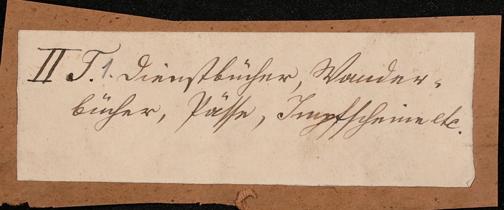 II T. 1. Dienstbücher, Wander-
bücher, Pässe, Impfscheine etc.